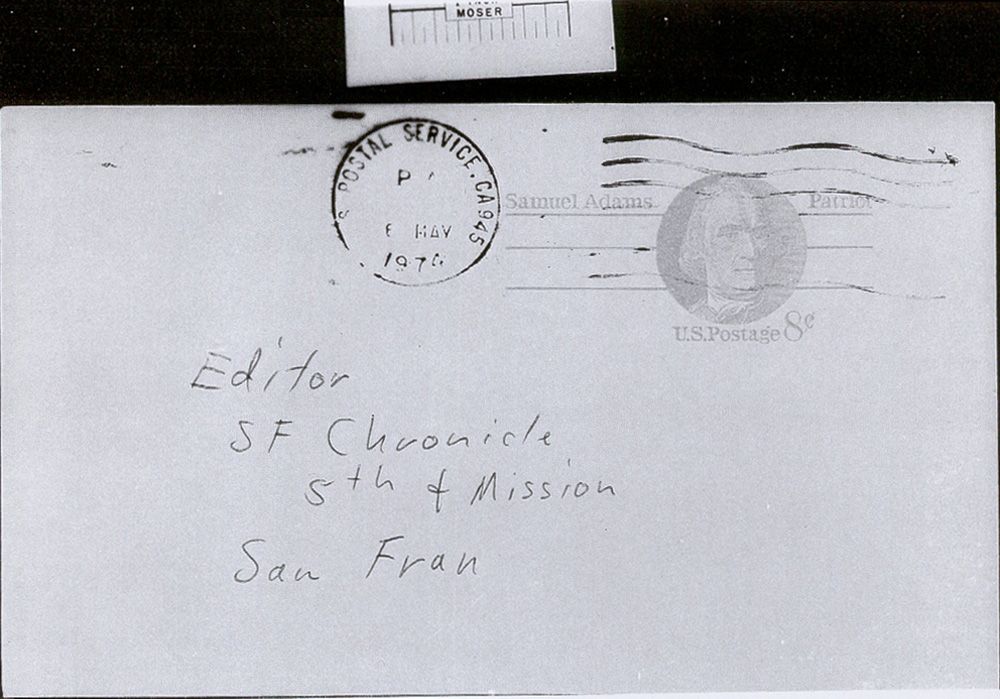 MOSER
S POSTAL SERVICE, CA945
P
6 MAY
Samuel Adams
Patriot
U.S.Postage 8¢
Editor
SF Chronicle
5th & Mission
San Fran